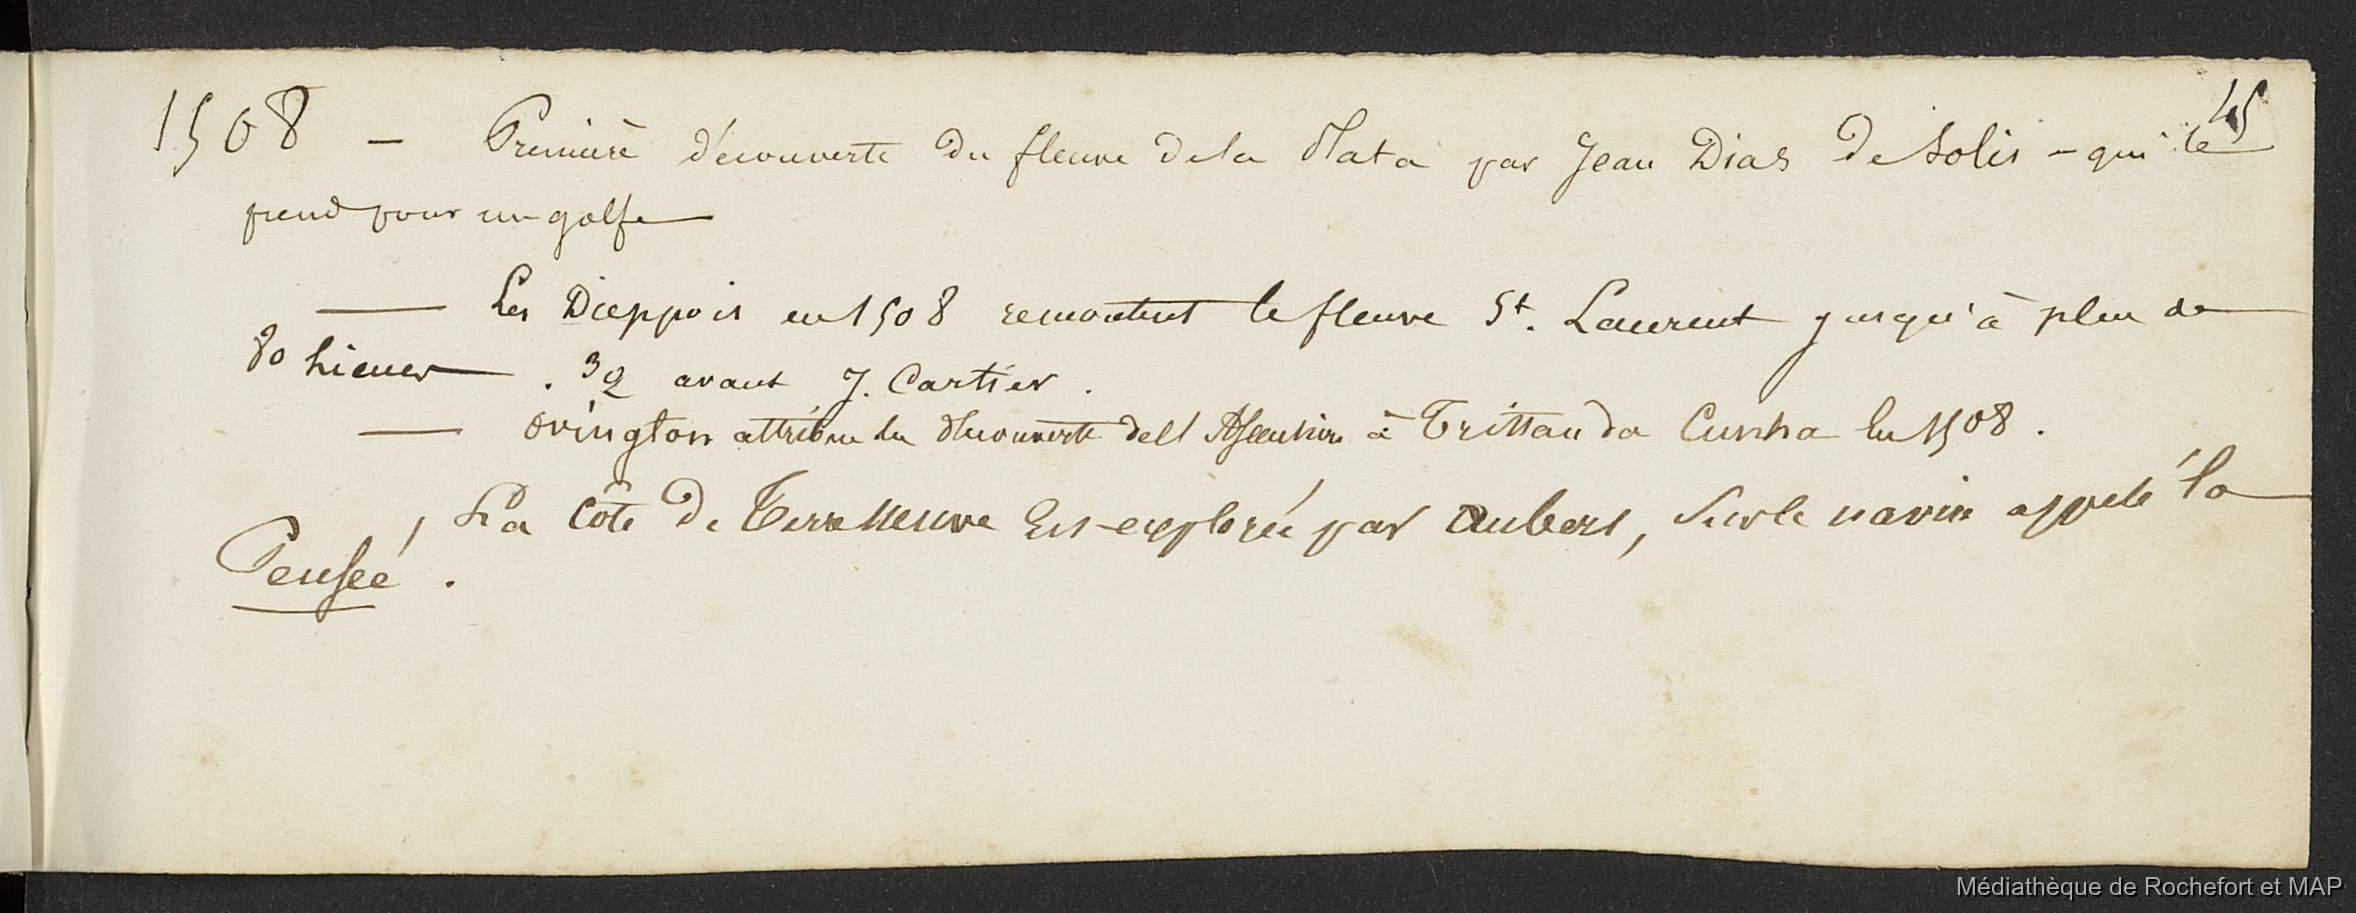 45
1508 — Première découverte du fleuve de la Plata par Jean Dias de Solis - qui le
prend pour un golfe
— Les Dieppois en 1508 remontent le fleuve St. Laurent jusqu'à plus de
80 lieues . 32 avant J. Cartier .
— Ovington attribue la découverte de l'Ascension à Tristan da Cunha en 1508 .
, La côte de Terre Neuve est explorée par Aubert, sur le navire appelé la
Pensée .
Médiathèque de Rochefort et MAP